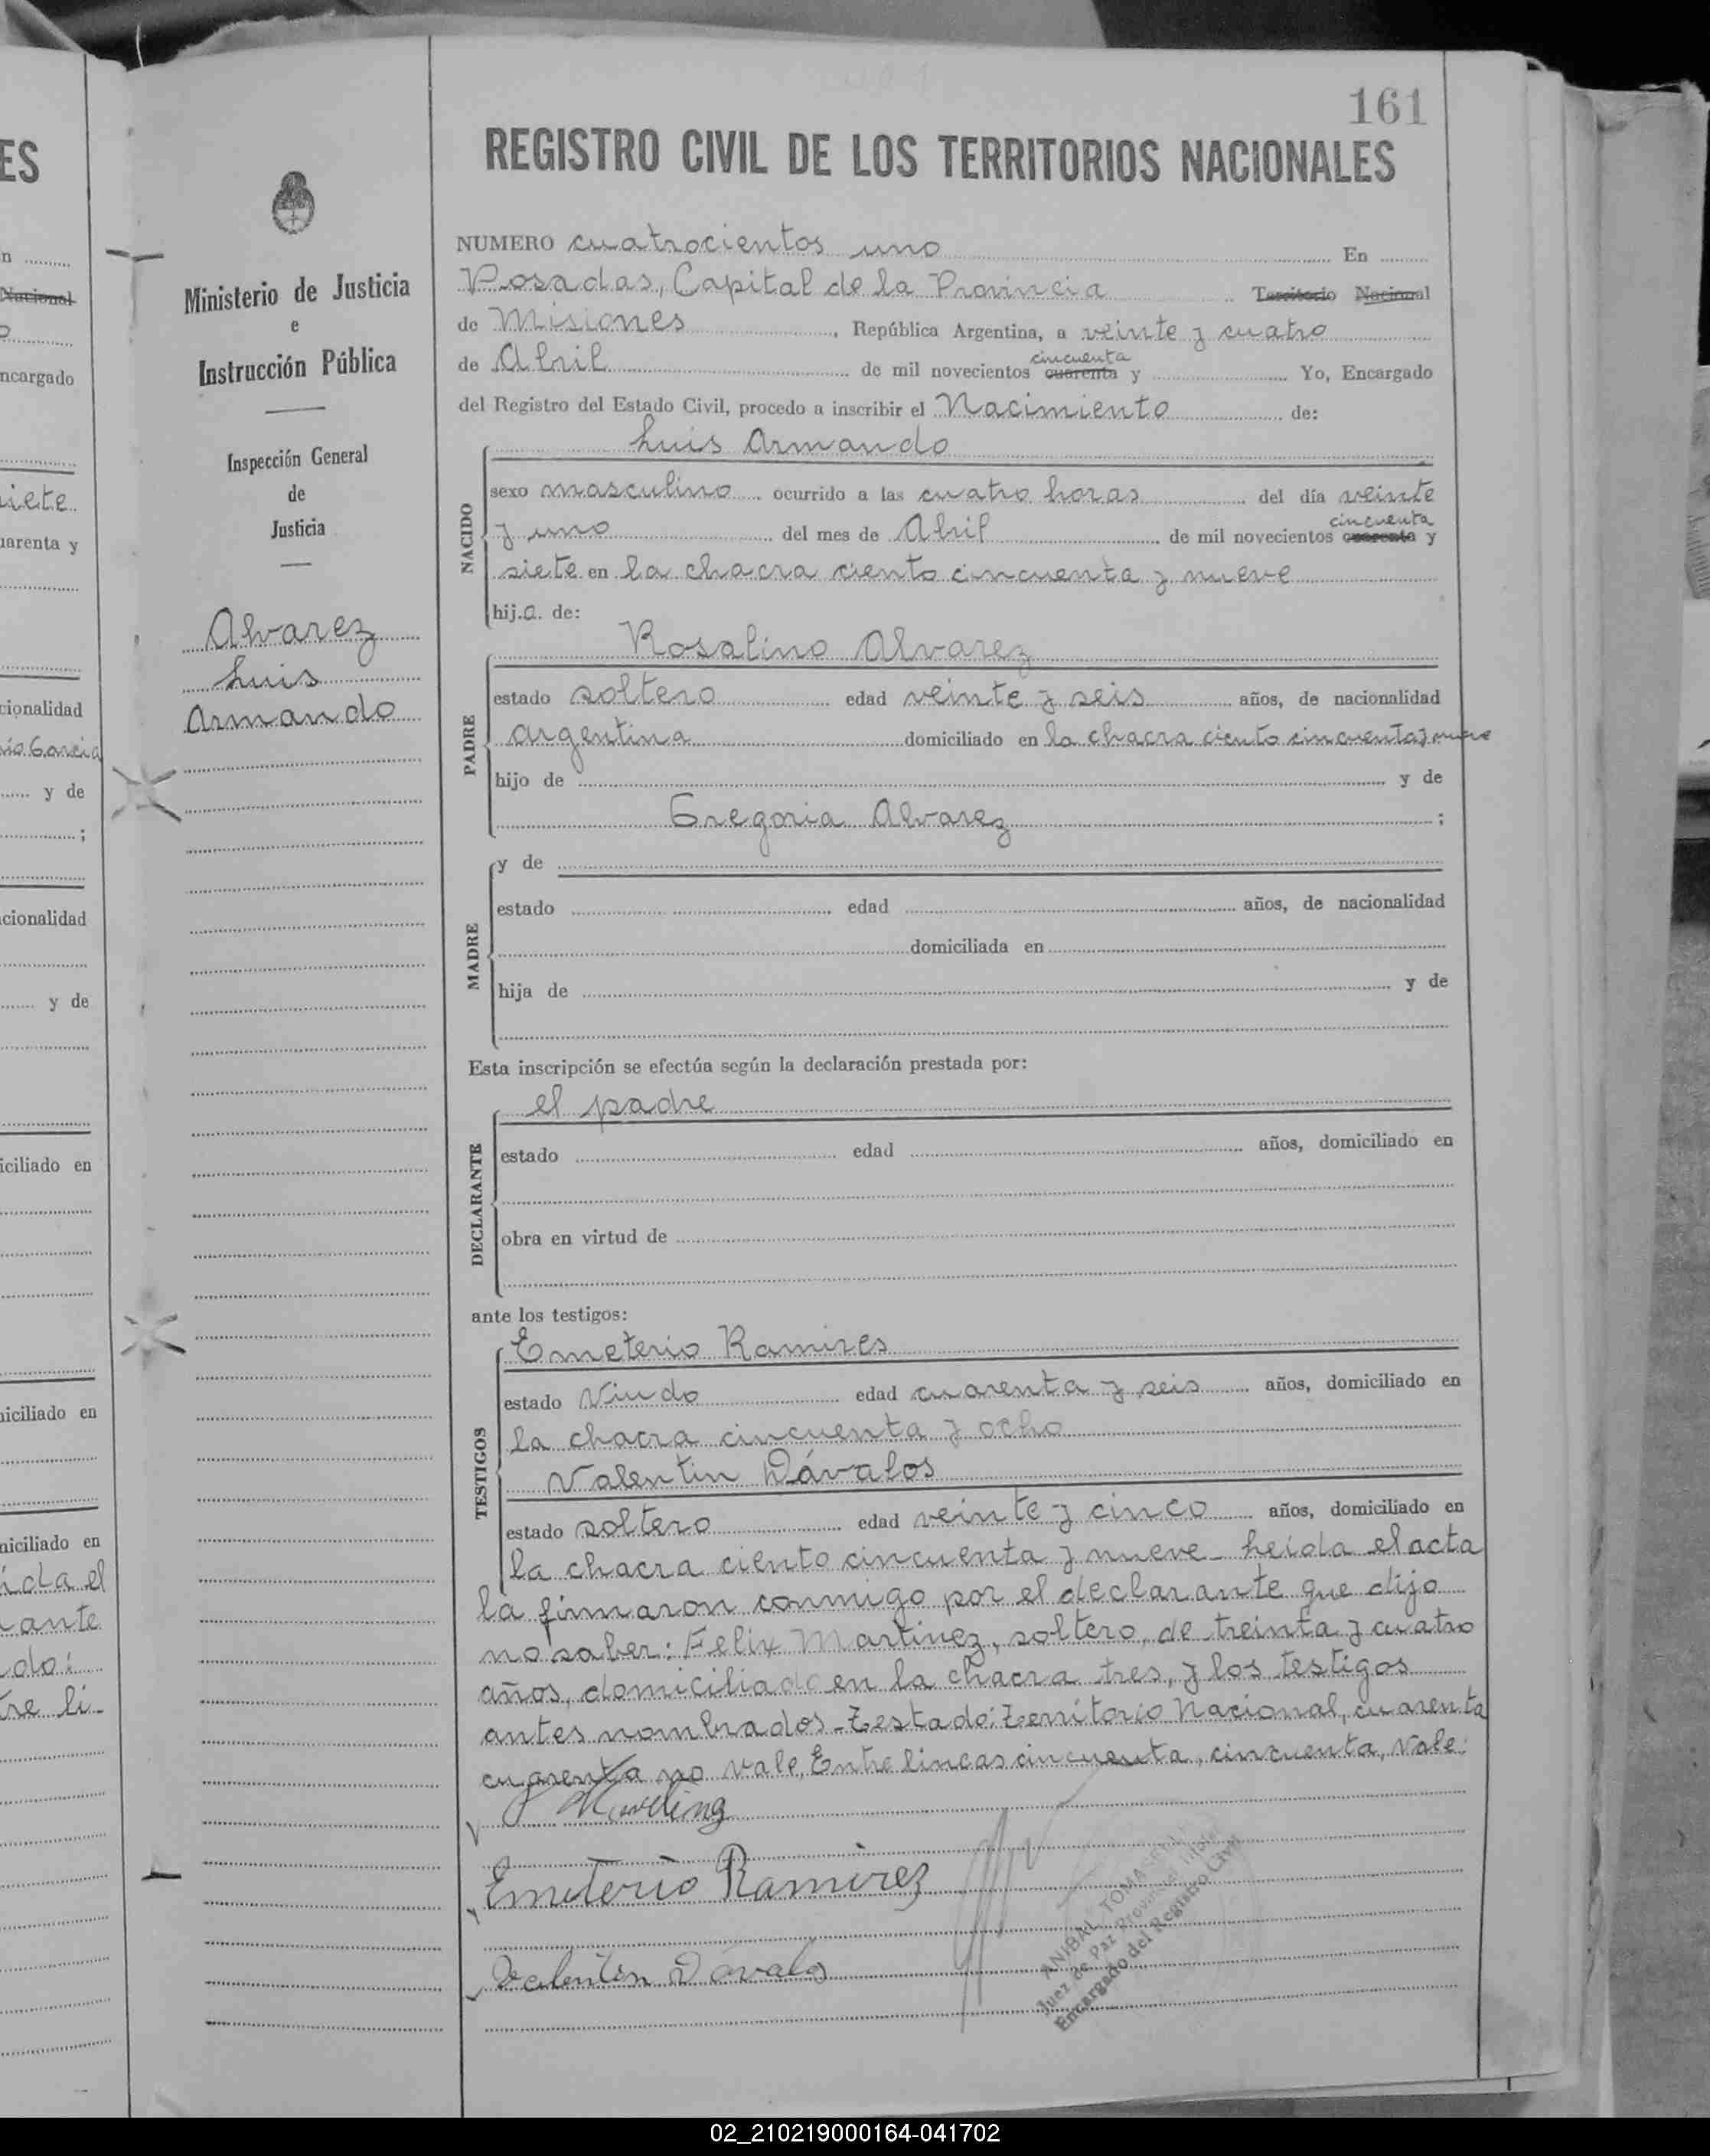 161
REGISTRO CIVIL DE LOS TERRITORIOS NACIONALES
Ministerio de Justicia
e
Instrucción Pública
Inspección General
de
Justicia
Alvarez
Luis
Armando
NUMERO cuatrocientos uno En
Posadas, Capital de la Provincia Territorio Nacional
de Misiones, República Argentina, a veinte y cuatro
cincuenta
de Abril de mil novecientos cuarenta y Yo, Encargado
del Registro del Estado Civil, procedo a inscribir el Nacimiento de:
NACIDO
Luis Armando
sexo masculino ocurrido a las cuatro horas del día veinte
cincuenta
y uno del mes de Abril de mil novecientos cuarenta y
siete en la chacra ciento cincuenta y nueve
hij.o. de:
PADRE
Rosalino Alvarez
estado soltero edad veinte y seis años, de nacionalidad
argentina domiciliado en la chacra ciento cincuenta y nueve
hijo de y de
Gregoria Alvarez ;
MADRE
y de
estado edad años, de nacionalidad
domiciliada en
hija de y de
Esta inscripción se efectúa según la declaración prestada por:
DECLARANTE
el padre
estado edad años, domiciliado en
obra en virtud de
ante los testigos:
TESTIGOS
Emeterio Ramires
estado Viudo edad cuarenta y seis años, domiciliado en
la chacra cincuenta y ocho
Valentin Dávalos
estado soltero edad veinte y cinco años, domiciliado en
la chacra ciento cincuenta y nueve - Leída el acta
la firmaron conmigo por el declarante que dijo
no saber: Felix Martinez, soltero, de treinta y cuatro
años, domiciliado en la chacra tres, y los testigos
antes nombrados - Testado: Territorio Nacional, cuarenta
cuarenta no vale, Entre lineas cincuenta, cincuenta, Vale:
Emeterio Ramirez
Valentin Dávalos
ANIBAL TOMA
Juez de Paz Provincial Titular
Encargado del Registro Civil
ES
n
Nacional
ncargado
iete
uarenta y
cionalidad
io Garcia
y de
;
cionalidad
y de
iciliado en
niciliado en
niciliado en
ida el
ante
do:
tre li-
02_210219000164-041702